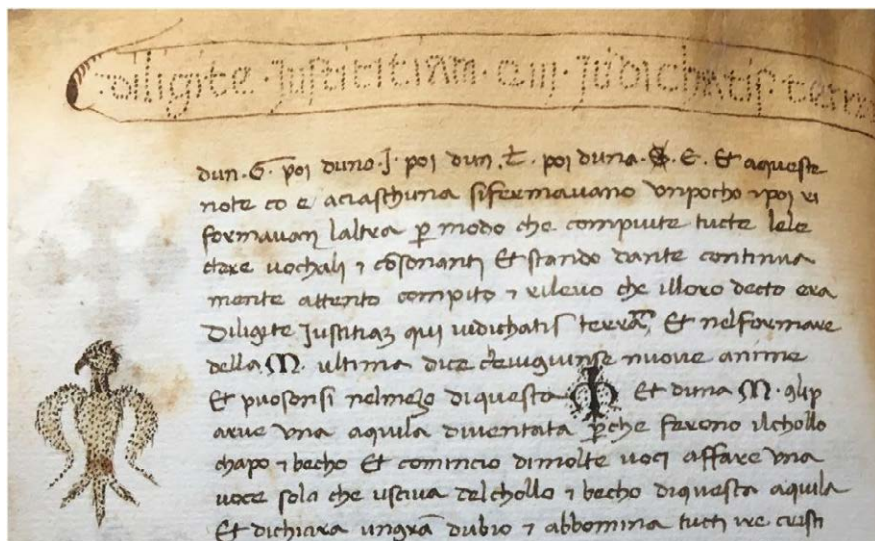 diligite · justititiam · qui · judichatis · terra
dun · G · poi duno · J · poi dun · t · poi duna · E · Et aqueste
note co e aciaschuna sifermavano vnpocho ⁊ poi ri
formavan laltra p̱ modo che compiute tucte lele
ctere uochali ⁊ cōsonanti Et stando dante continua
mente attento compito ⁊ rilevo che illoro decto era
Diligite Justitiaȝ qui iudichatis terrā, Et nelformare
della M · ultima dice nuove anime
Et puosonsi nelmeȝo diquesta M Et duna M ·
arue vna aquila diventata p̱che ferono ilchollo
chapo ⁊ becho Et comincio dimolte uoci affare vna
uoce sola che usciva delchollo ⁊ becho diquesta aquila
Et dichiara ungrā dubio ⁊ abbomina tucti ire cristi